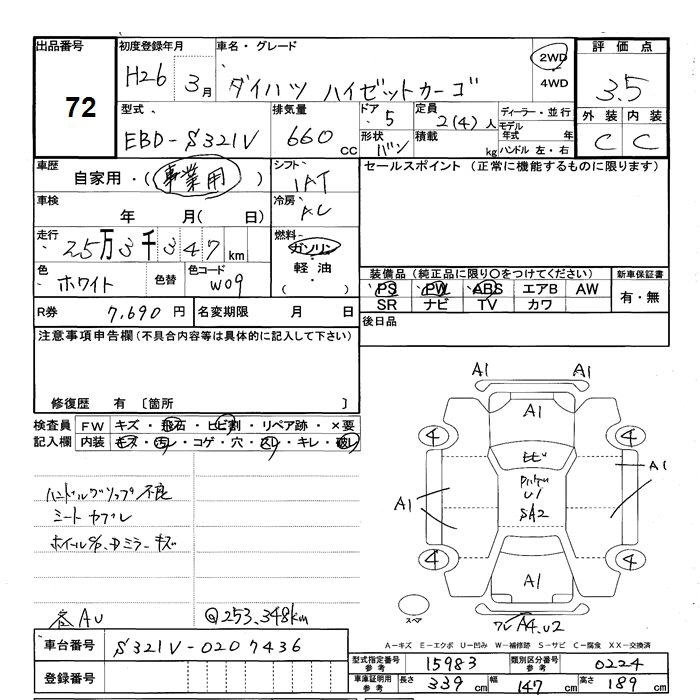 出品番号 初度登録年月 車名・グレード 2WD 評価点
72 H26 3月 ダイハツ ハイゼットカーゴ 4WD 3.5
型式 排気量 ドア 5 定員 2(4)人 ディーラー・並行 外装 内装
EBD-S321V 660cc 形状 バン 積載 kg モデル年式 年 ハンドル 左・右 C C
車歴 シフト セールスポイント (正常に機能するものに限ります)
自家用・(事業用) IAT
車検 冷房
年 月( 日) AC
走行 燃料
25万3千347km ガソリン
色 色替 色コード 軽油 装備品 (純正品に限り〇をつけてください) 新車保証書
ホワイト W09 ( ) PS PW ABS エアB AW 有・無
R券 7,690円 名変期限 月 日 SR ナビ TV カワ
注意事項申告欄(不具合内容等は具体的に記入して下さい) 後日品
修復歴 有 〔箇所 〕
検査員 FW キズ・飛石・ヒビ割・リペア跡・×要
記入欄 内装 キズ・汚レ・コゲ・穴・スレ・キレ・破レ
A1 A1
A1
4 4
ヒビ
A1 U1 A1
SA2
4 4
A1
スペア A4.U2
ハンドルグリップ不良
シートカブレ
ミラーキズ
各AU @253,348km
A-キズ E-エクボ U-凹み W-補修跡 S-サビ C-腐食 XX-交換済
車台番号 S321V-0207436
型式指定番号 参考 15983 類別区分番号 参考 0224
登録番号
車庫証明用 参考 長さ 339cm 幅 147cm 高さ 189cm